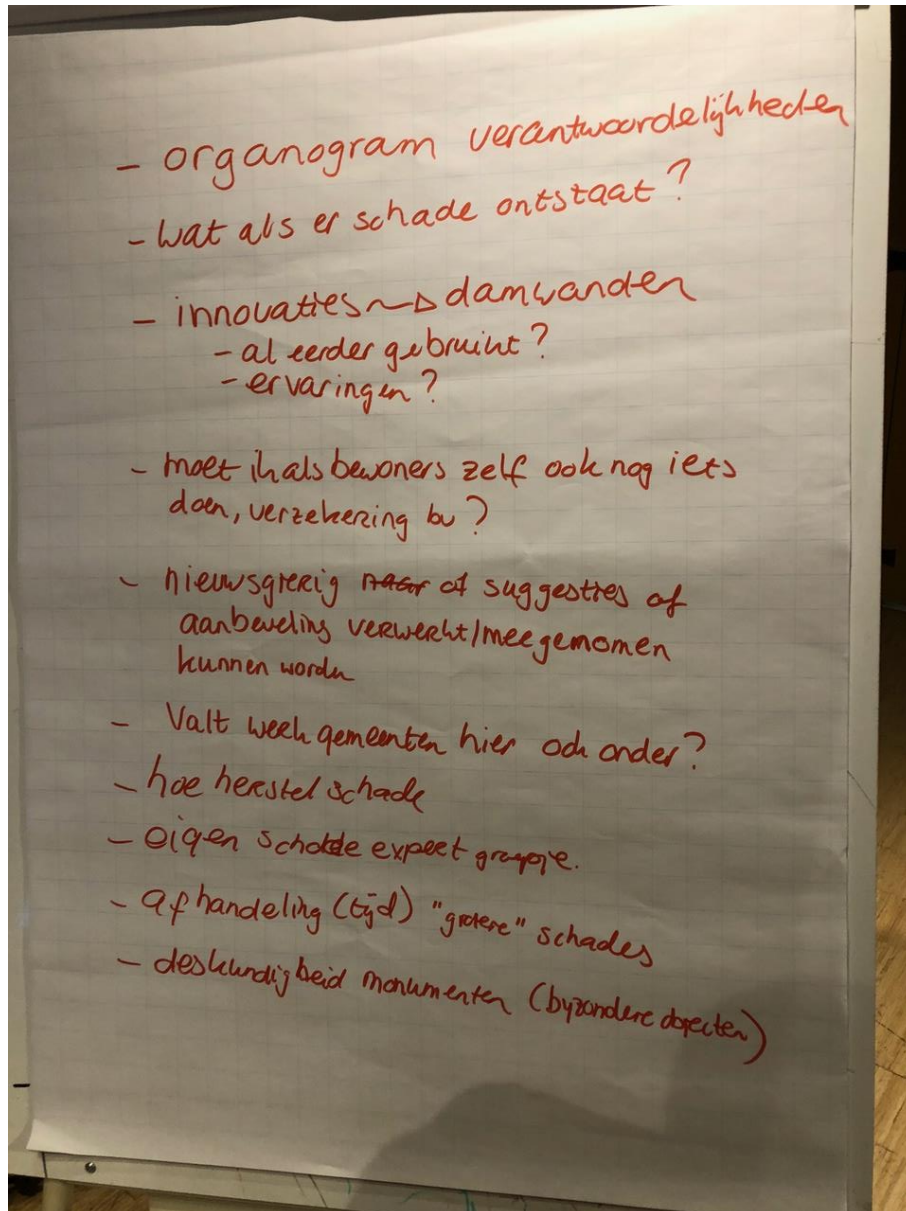 - organogram verantwoordelijkheden
- wat als er schade ontstaat?
- innovaties ~> damwanden
- al eerder gebruikt?
- ervaringen?
- moet ik als bewoners zelf ook nog iets
doen, verzekering bv?
- nieuwsgierig naar of suggesties of
aanbeveling verwerkt/meegenomen
kunnen worden
- Valt week gemeenten hier ook onder?
- hoe herstel schade
- eigen schade expert groepje.
- afhandeling (tijd) "grotere" schades
- deskundigheid monumenten (byzondere objecten)